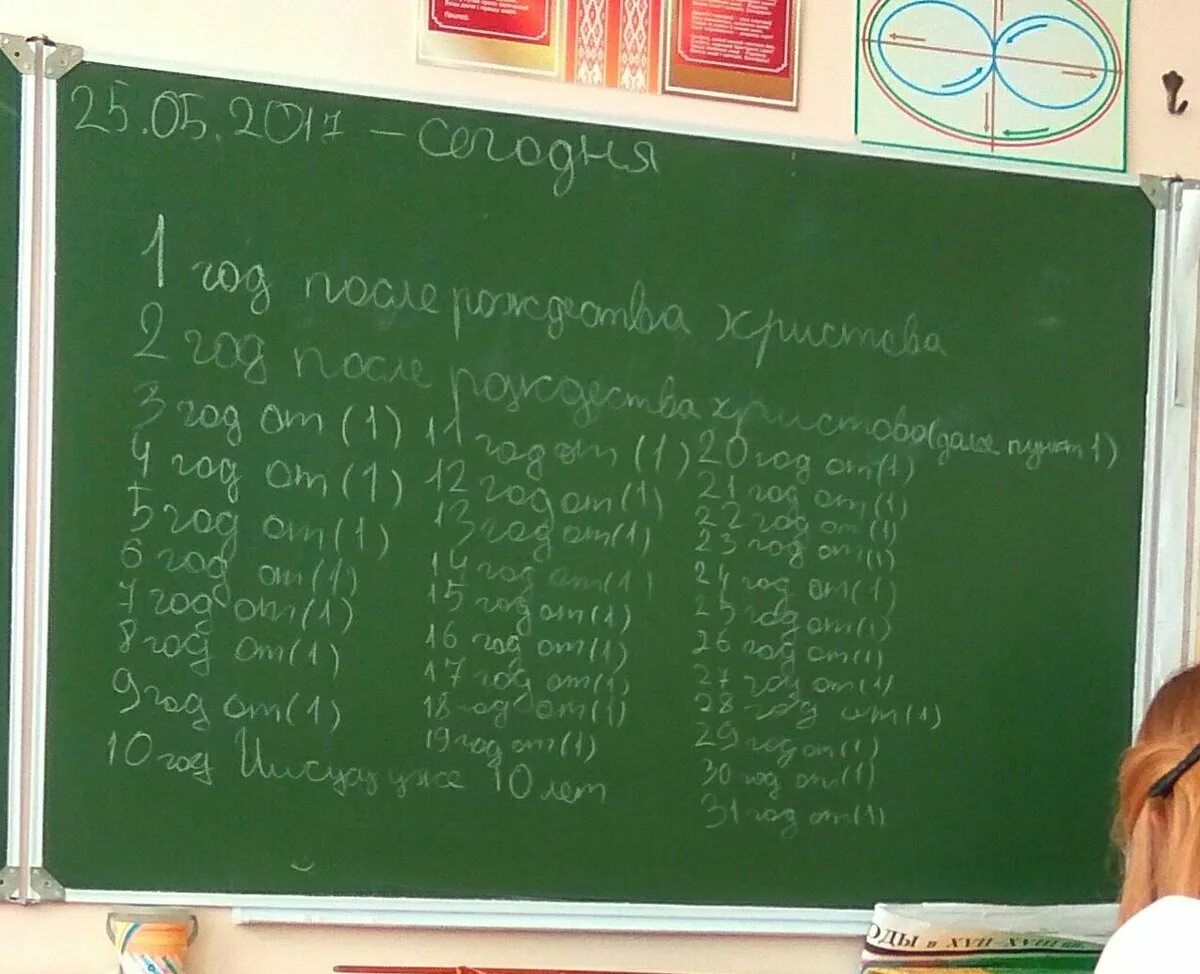 25.05.2017 – сегодня
1 год после рождества христова
2 год после рождества христово (далее пункт 1)
3 год от (1)
4 год от (1)
5 год от (1)
6 год от (1)
7 год от (1)
8 год от (1)
9 год от (1)
10 год Иисусу уже 10 лет
11 год от (1)
12 год от (1)
13 год от (1)
14 год от (1)
15 год от (1)
16 год от (1)
17 год от (1)
18 год от (1)
19 год от (1)
20 год от (1)
21 год от (1)
22 год от (1)
23 год от (1)
24 год от (1)
25 год от (1)
26 год от (1)
27 год от (1)
28 год от (1)
29 год от (1)
30 год от (1)
31 год от (1)
Припев:
ОДЫ в XVII XVIII вв.